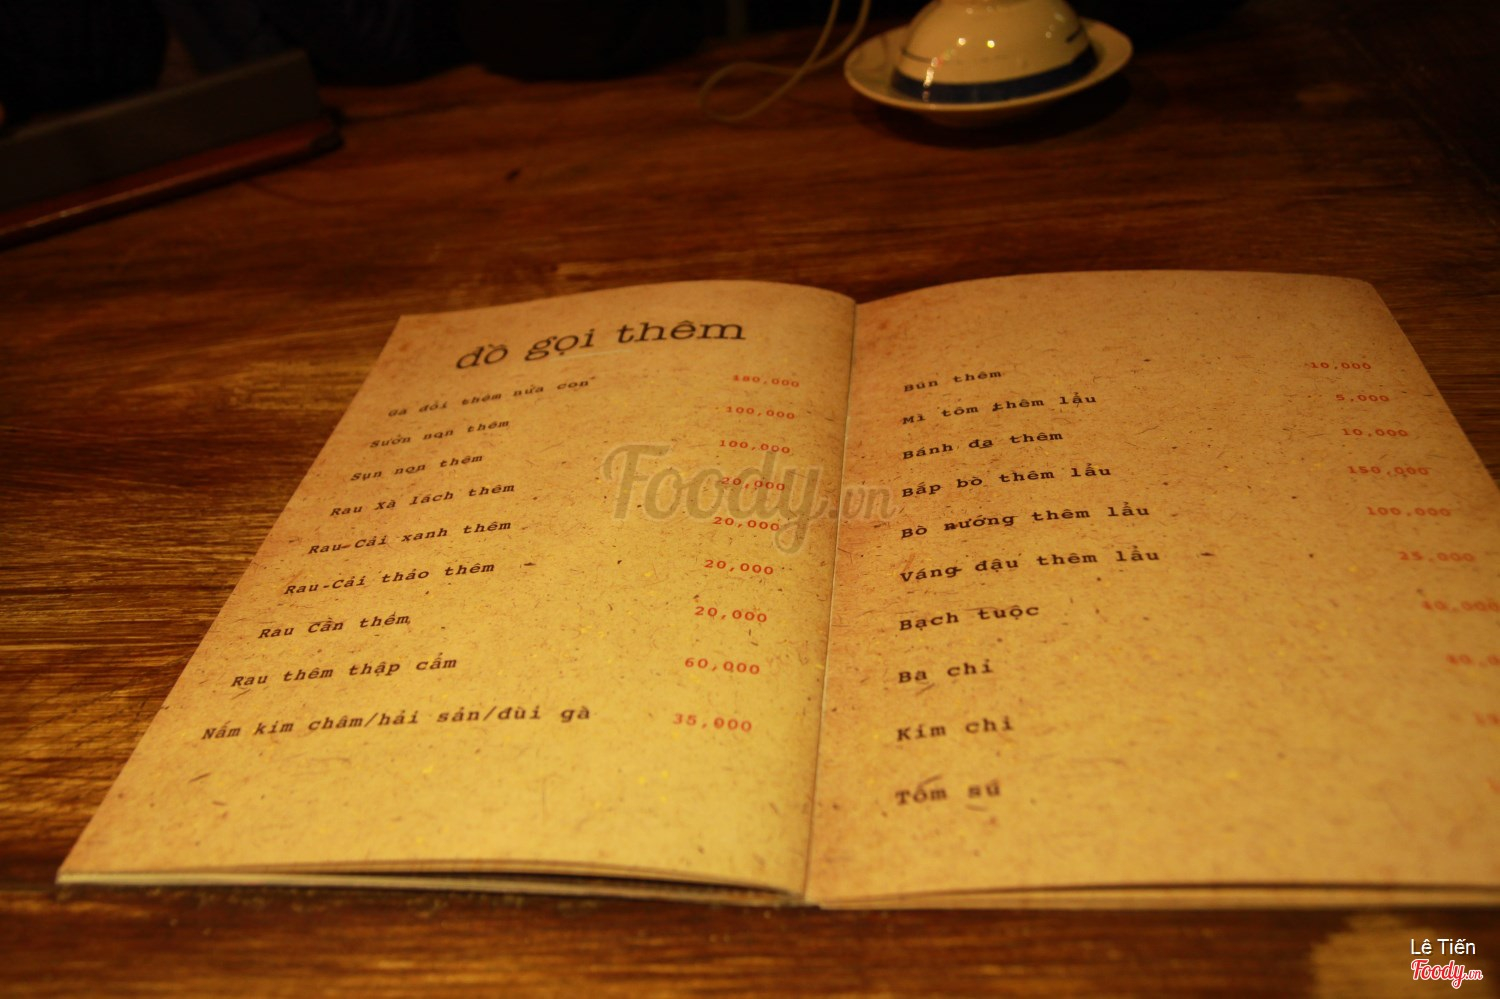 đồ gọi thêm
Gà đồi thêm nửa con 180,000
Sườn non thêm 100,000
Sụn non thêm 100,000
Rau Xà lách thêm 20,000
Rau Cải xanh thêm 20,000
Rau Cải thảo thêm 20,000
Rau Cần thêm 20,000
Rau thêm thập cẩm 60,000
Nấm kim châm/hải sản/đùi gà 35,000
Bún thêm 10,000
Mì tôm thêm lẩu 5,000
Bánh đa thêm 10,000
Bắp bò thêm lẩu 150,000
Bò nướng thêm lẩu 100,000
Váng đậu thêm lẩu 25,000
Bạch tuộc
Ba chỉ
Kim chi
Tôm sú
Foody.vn
Lê Tiến
Foody.vn